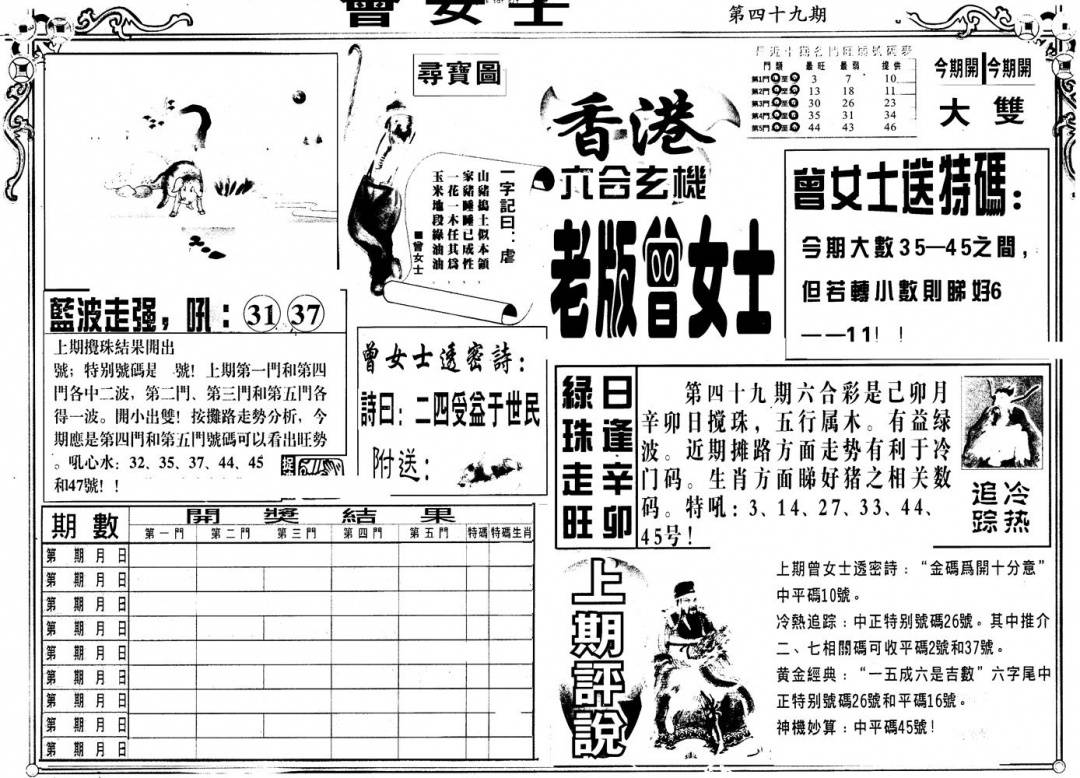 曾女士
第四十九期
尋寶圖
一字記曰：虐
山豬搗土似本領，
家豬睡睡已成性，
一花一木任其爲，
玉米地段綠油油。
■曾女士
香港
六合玄機
老版曾女士
門類 最旺 最弱 提供
第1門 至 3 7 10
第2門 至 13 18 11
第3門 至 30 26 23
第4門 至 35 31 34
第5門 至 44 43 46
今期開 今期開
大 雙
曾女士送特碼：
今期大數35—45之間，
但若轉小數則睇好6
——11！！
藍波走强，吼：31 37
上期攪珠結果開出
號；特別號碼是 號！上期第一門和第四
門各中二波，第二門、第三門和第五門各
得一波。開小出雙！按攤路走勢分析，今
期應是第四門和第五門號碼可以看出旺勢
。吼心水：32、35、37、44、45
和47號！！
曾女士透密詩：
詩曰：二四受益于世民
附送：
日逢辛卯
綠珠走旺
第四十九期六合彩是己卯月
辛卯日搅珠，五行属木。有益绿
波。近期摊路方面走势有利于冷
门码。生肖方面睇好猪之相关数
码。特吼：3、14、27、33、44、
45号！
冷热
追踪
期數 開獎結果
第一門 第二門 第三門 第四門 第五門 特碼 特碼生肖
第 期 月 日
第 期 月 日
第 期 月 日
第 期 月 日
第 期 月 日
第 期 月 日
第 期 月 日
第 期 月 日
第 期 月 日
上期評說
上期曾女士透密詩：“金碼爲開十分意”
中平碼10號。
冷熱追踪：中正特别號碼26號。其中推介
二、七相關碼可收平碼2號和37號。
黄金經典：“一五成六是吉數”六字尾中
正特别號碼26號和平碼16號。
神機妙算：中平碼45號！